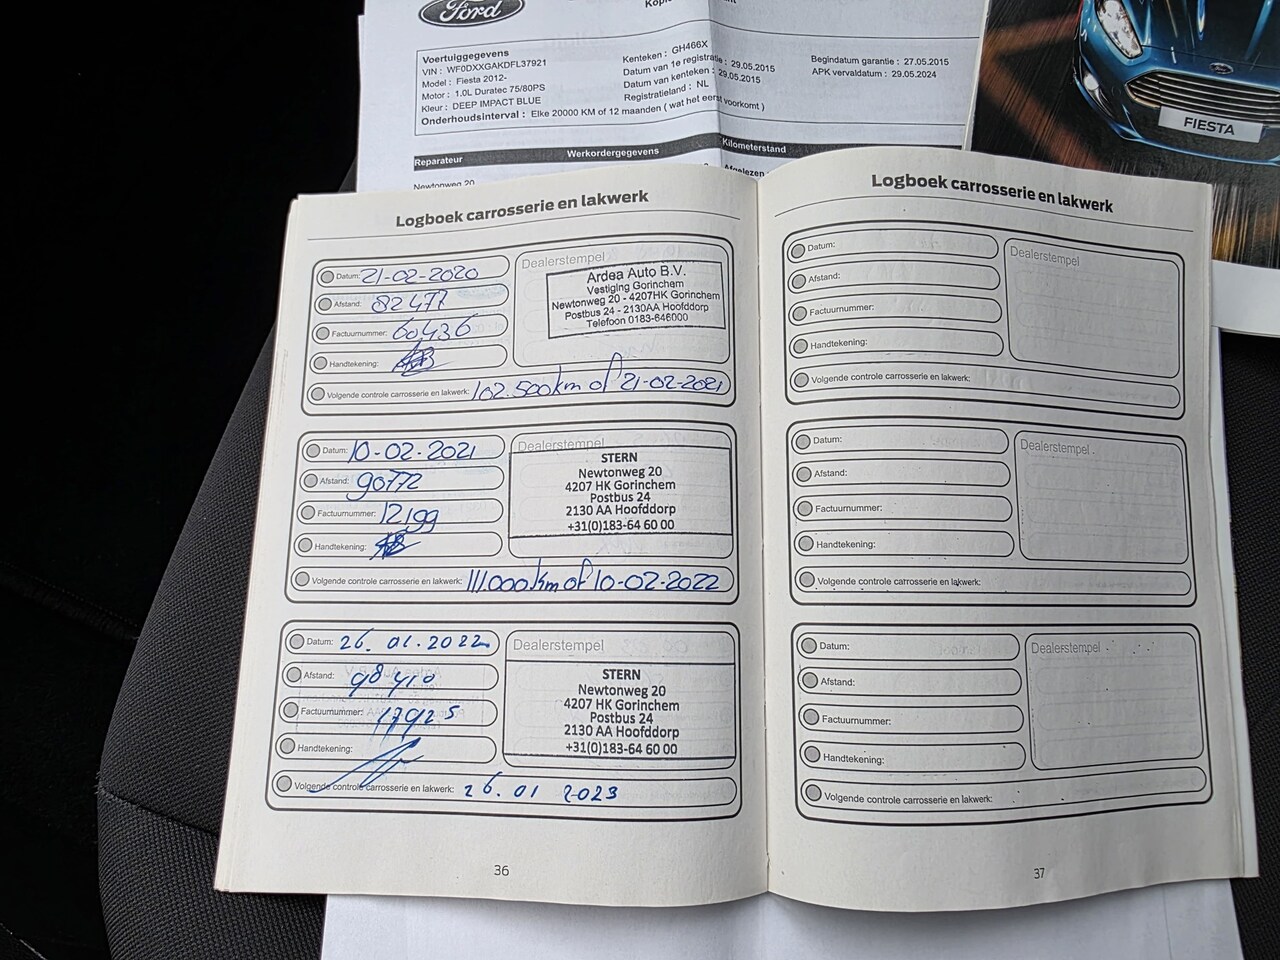 Ford
Voertuiggegevens
VIN : WF0DXXGAKDFL37921
Model : Fiesta 2012-
Motor : 1.0L Duratec 75/80PS
Kleur : DEEP IMPACT BLUE
Onderhoudsinterval : Elke 20000 KM of 12 maanden ( wat het eerst voorkomt )
Kenteken : GH466X
Datum van 1e registratie : 29.05.2015
Datum van kenteken : 29.05.2015
Registratieland : NL
Begindatum garantie : 27.05.2015
APK vervaldatum : 29.05.2024
Reparateur Werkordergegevens Kilometerstand
Newtonweg 20
FIESTA
Logboek carrosserie en lakwerk
Datum: 21-02-2020
Afstand: 82477
Factuurnummer: 60436
Handtekening:
Volgende controle carrosserie en lakwerk: 102.500km of 21-02-2021
Dealerstempel
Ardea Auto B.V.
Vestiging Gorinchem
Newtonweg 20 - 4207HK Gorinchem
Postbus 24 - 2130AA Hoofddorp
Telefoon 0183-646000
Datum: 10-02-2021
Afstand: 90772
Factuurnummer: 12199
Handtekening:
Volgende controle carrosserie en lakwerk: 111.000km of 10-02-2022
Dealerstempel
STERN
Newtonweg 20
4207 HK Gorinchem
Postbus 24
2130 AA Hoofddorp
+31(0)183-64 60 00
Datum: 26.01.2022
Afstand: 98410
Factuurnummer: 17925
Handtekening:
Volgende controle carrosserie en lakwerk: 26.01 2023
Dealerstempel
STERN
Newtonweg 20
4207 HK Gorinchem
Postbus 24
2130 AA Hoofddorp
+31(0)183-64 60 00
36
Logboek carrosserie en lakwerk
Datum:
Afstand:
Factuurnummer:
Handtekening:
Volgende controle carrosserie en lakwerk:
Dealerstempel
Datum:
Afstand:
Factuurnummer:
Handtekening:
Volgende controle carrosserie en lakwerk:
Dealerstempel
Datum:
Afstand:
Factuurnummer:
Handtekening:
Volgende controle carrosserie en lakwerk:
Dealerstempel
37